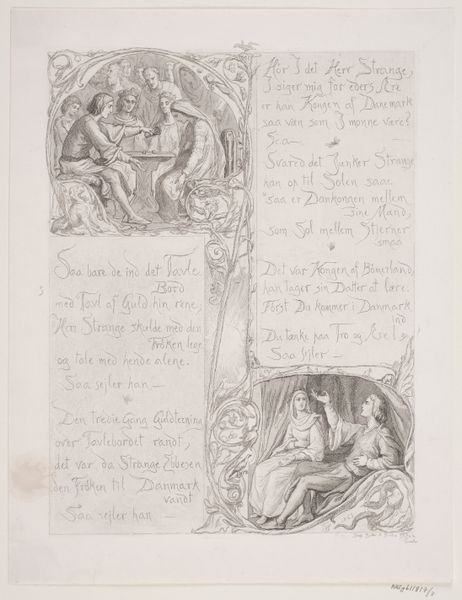 Saa bare de ind det Tavle
Bord
med Tavl af Guld hin rene,
Herr Strange skulde med den
Frøken lege
og tale med hende alene.
Saa sejler han —
Den tredie Gang Guldterning
over Tavlebordet randt,
det var da Strange Ebbesen
den Frøken til Danmark
vandt
Saa sejler han —
Hör I det Herr Strange,
I siger mig for eders Ære
er han Kongen af Danemark
saa væn som I monne være?
Svared det Junker Strange
han op til Solen saae:
"saa er Dankongen mellem
sine Mænd,
som Sol mellem Stjerner
smaa
Det var Kongen af Bömerland,
han tager sin Datter at lære:
Först Du kommer i Danmark
ind
Du tænke paa Tro og Ære!
Saa sejler —